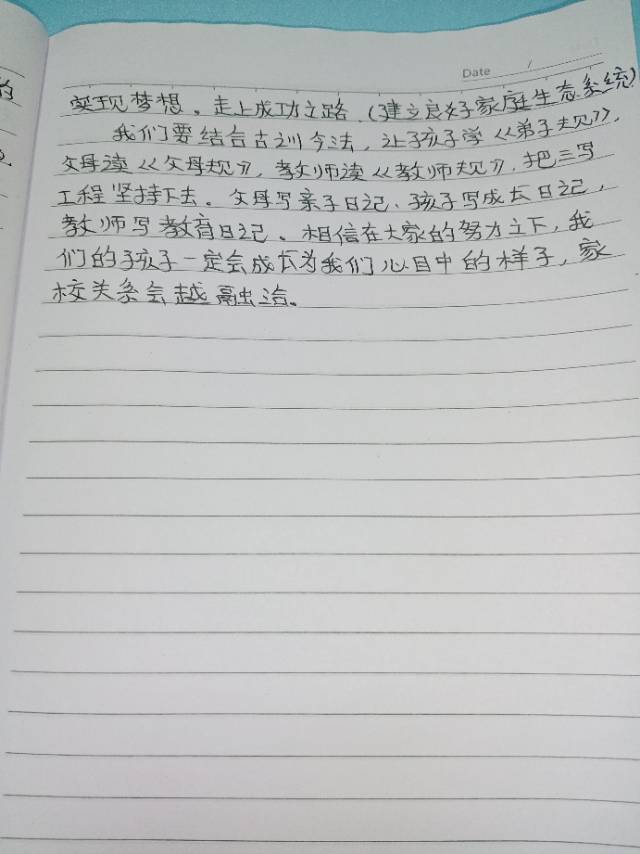 Date /
实现梦想，走上成功之路（建立良好家庭生态系统）
我们要结合古训今法，让孩子学《弟子规》，
父母读《父母规》，教师读《教师规》，把三写
工程坚持下去。父母写亲子日记、孩子写成长日记，
教师写教育日记。相信在大家的努力之下，我
们的孩子一定会成长为我们心目中的样子，家
校关系会越融洽。